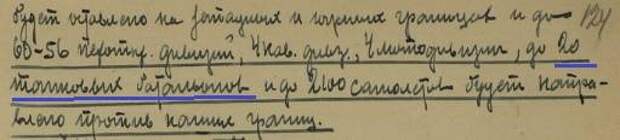 будет оставлено на западных и южных границах и до 124
60-56 пехотн. дивизий, 4 кав. див., 4 мотодивизии, до 20
танковых батальонов и до 2100 самолетов будет напра-
влено против наших границ.